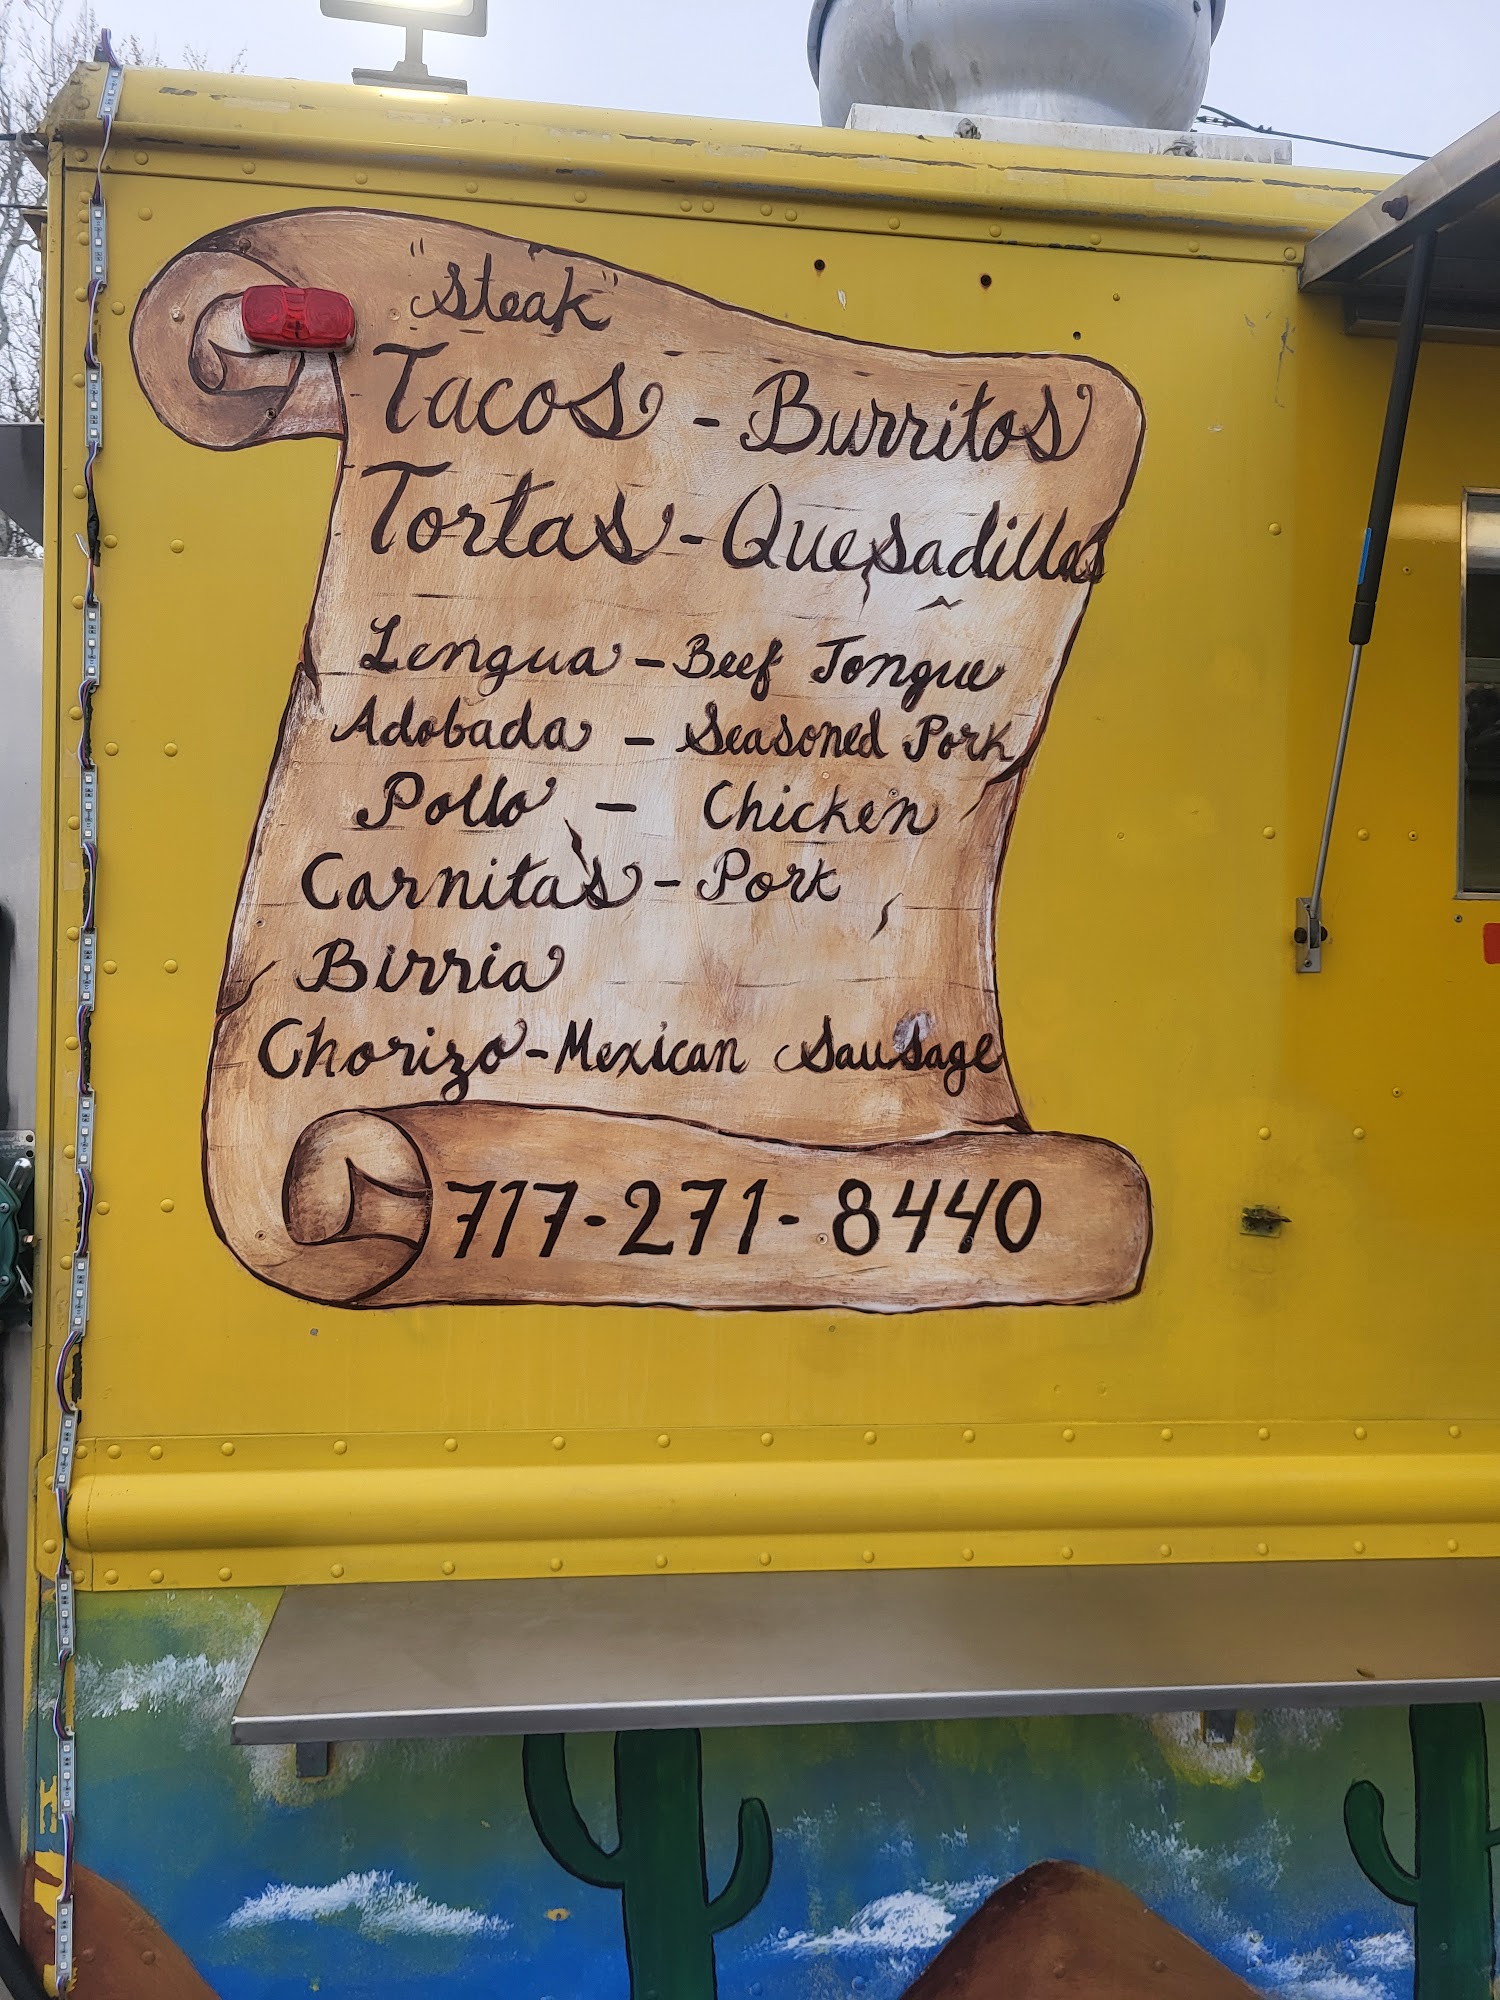 "Steak"
Tacos - Burritos
Tortas - Quesadillas
Lengua - Beef Tongue
Adobada - Seasoned Pork
Pollo - Chicken
Carnitas - Pork
Birria
Chorizo - Mexican Sausage
717-271-8440